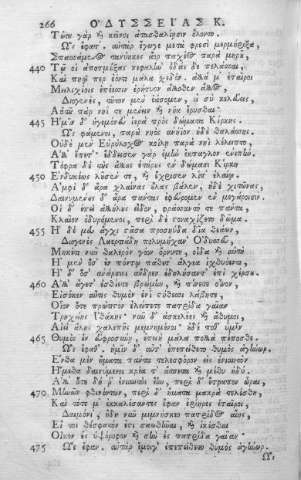 266 ὈΔΥΣΣΕΙΑΣ Κ.
Τούτου γὰρ καὶ κεῖνοι ἀτασθαλίῃσιν ὄλοντο.
Ὣς ἔφατ'· αὐτὰρ ἔγωγε μετὰ φρεσὶ μερμήριξα,
Σπασσάμενος τανύηκες ἄορ παχέος παρὰ μηροῦ
440 Τῷ οἱ ἀποτμήξας κεφαλὴν οὖδάς δὲ πελάσσαι,
Καὶ πηῷ περ ἐόντι μάλα σχεδόν. ἀλλά μ' ἑταῖροι
Μειλιχίοις ἐπέεσσιν ἐρήτυον ἄλλοθεν ἄλλος·
Διογενὲς, τοῦτον μὲν ἐάσομεν, εἰ σὺ κελεύεις,
Αὐτοῦ πὰρ νηΐ τε μένειν καὶ νῆα ἔρυσθαι·
445 Ἡμῖν δ' ἡγεμόνευ' ἱερὰ πρὸς δώματα Κίρκης.
Ὣς φάμενοι, παρὰ νηὸς ἀνήϊον ἠδὲ θαλάσσης.
Οὐδὲ μὲν Εὐρύλοχος κοίλῃ παρὰ νηῒ λέλειπτο,
Ἀλλ' ἕπετ'· ἔδδεισεν γὰρ ἐμὴν ἔκπαγλον ἐνιπήν.
Τόφρα δὲ τοὺς ἄλλους ἑτάρους ἐν δώμασι Κίρκη
450 Ἐνδυκέως λοῦσέν τε, καὶ ἔχρισεν λίπ' ἐλαίῳ.
Ἀμφὶ δ' ἄρα χλαίνας οὔλας βάλεν, ἠδὲ χιτῶνας,
Δαινυμένους δ' ἄρα πάντας ἐφεύρομεν ἐν μεγάροισιν.
Οἱ δ' ἐπεὶ ἀλλήλους εἶδον, φράσσαντό τε πάντα,
Κλαῖον ὀδυρόμενοι, περὶ δὲ στοναχίζετο δῶμα.
455 Ἡ δέ μευ ἄγχι στᾶσα προσηύδα δῖα θεάων,
Διογενὲς Λαερτιάδη πολυμήχαν' Ὀδυσσεῦ,
Μηκέτι νῦν θαλερὸν γόον ὄρνυτε, οἶδα καὶ αὐτὴ
Ἠ μὲν ὅσ' ἐν πόντῳ πάθετ' ἄλγεα ἰχθυόεντι,
Ἠ δ' ὅσ' ἀνάρσιοι ἄνδρες ἐδηλήσαντ' ἐπὶ χέρσου.
460 Ἀλλ' ἄγετ' ἐσθίετε βρώμην, καὶ πίνετε οἶνον,
Εἰσόκεν αὖτις θυμὸν ἐνὶ στήθεσσι λάβητε,
Οἷον ὅτε πρώτιστον ἐλείπετε πατρίδα γαῖαν
Τρηχείης Ἰθάκης· νῦν δ' ἀσκελέες καὶ ἄθυμοι,
Αἰὲν ἄλης χαλεπῆς μεμνημένοι· οὐδέ ποθ' ὑμῖν
465 Θυμὸς ἐν εὐφροσύνῃ, ἐπειὴ μάλα πολλὰ πέποσθε.
Ὣς ἔφαθ'· ἡμῖν δ' αὖτ' ἐπεπείθετο θυμὸς ἀγήνωρ.
Ἔνθα μὲν ἤματα πάντα τελεσφόρον εἰς ἐνιαυτὸν
Ἥμεθα δαινύμενοι κρέα τ' ἄσπετα καὶ μέθυ ἡδύ.
Ἀλλ' ὅτε δή ῥ' ἐνιαυτὸς ἔην, περὶ δ' ἔτραπον ὧραι,
470 Μηνῶν φθινόντων, περὶ δ' ἤματα μακρὰ τελέσθη,
Καὶ τότε μ' ἐκκαλέσαντες ἔφαν ἐρίηρες ἑταῖροι,
Δαιμόνι', ἤδη νῦν μιμνήσκεο πατρίδος αἴης,
Εἴ τοι θέσφατόν ἐστι σαωθῆναι, καὶ ἱκέσθαι
Οἶκον ἐς ὑψόροφον καὶ σὴν ἐς πατρίδα γαῖαν.
475 Ὣς ἔφαν. αὐτὰρ ἔμοιγ' ἐπεπείθετο θυμὸς ἀγήνωρ.
Ὣς